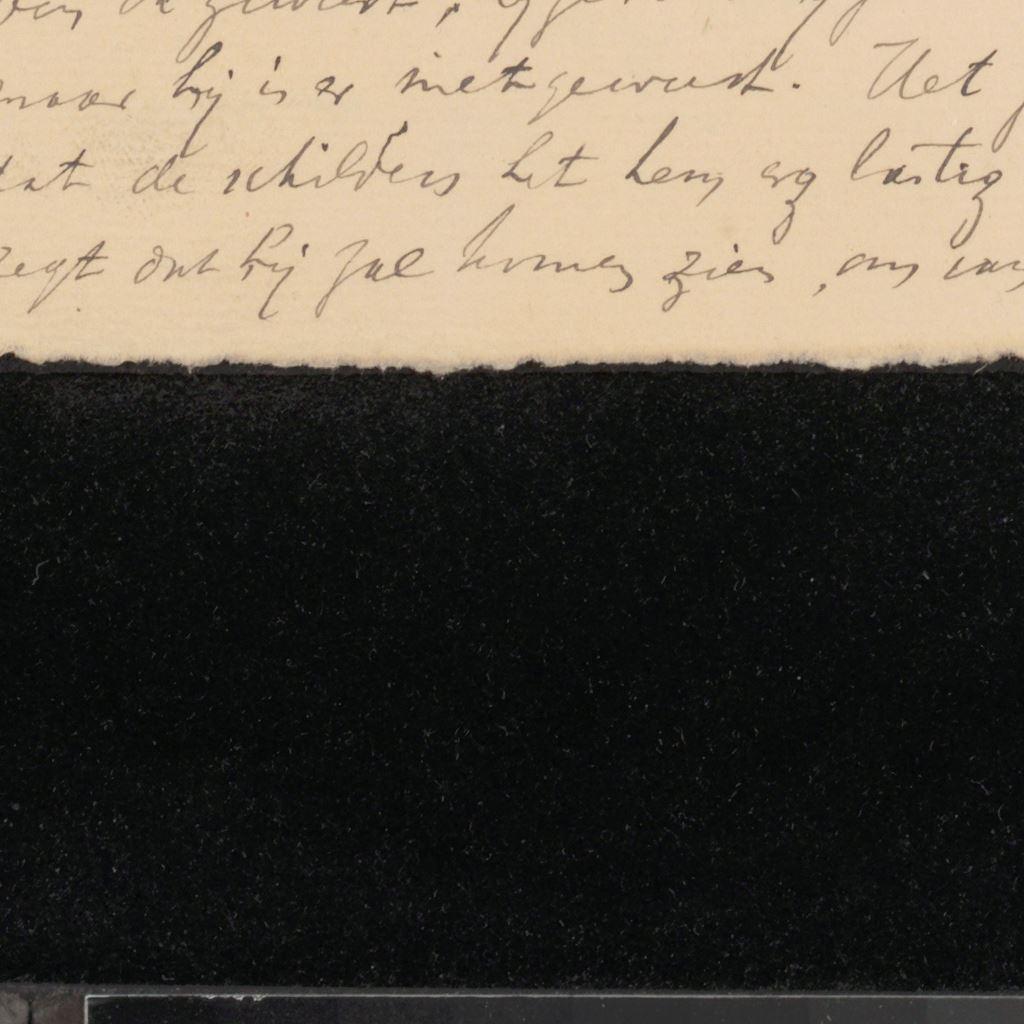 maar hij is er niet geweest. Het
dat de schilders het hem erg lastig
zegt dat hij zal komen zien, om van